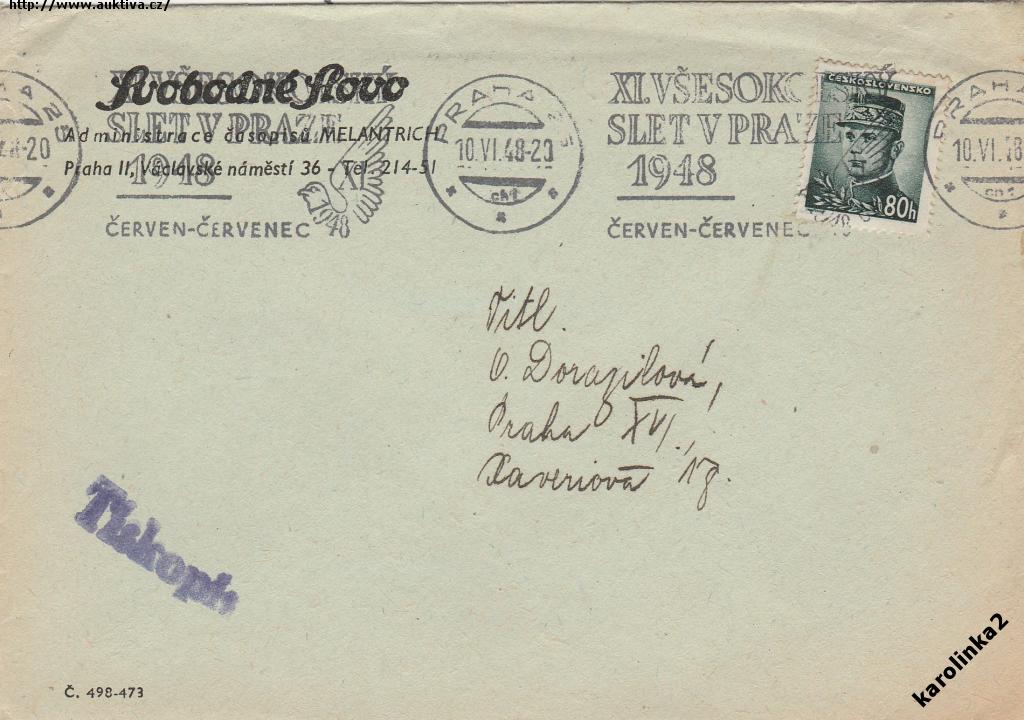 http://www.auktiva.cz/
Svobodné Slovo
Administrace časopisů MELANTRICH
Praha II, Václavské náměstí 36 - Tel. 214-51
XI. VŠESOKOLSKÝ
SLET V PRAZE
1948
ČERVEN-ČERVENEC
XI
1948
PRAHA 25
10.VI.48-20
XI. VŠESOKO
SLET V PRAZE
1948
ČERVEN-ČERVENEC
ČESKOSLOVENSKO
80h
PRAHA
10.VI.
Titl.
O. Dorazilová,
Praha XVI.,
Xaveriova 18.
Tiskopis
Č. 498-473
karolinka2